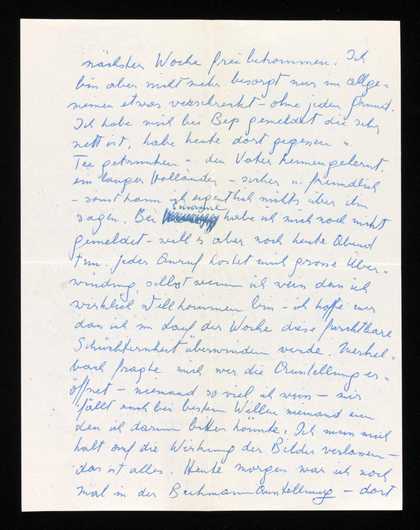 nächster Woche freibekommen. Ich
bin aber nicht mehr besorgt nur im allge-
meinen etwas verschreckt – ohne jeden Grund.
Ich habe mich bei Bep gemeldet die sehr
nett ist, habe heute dort gegessen u.
Tee getrunken u. den Vater kennengelernt.
ein langer Holländer – sicher u. freundlich
– sonst kann ich eigentlich nichts über ihn
sagen. Bei habe ich mich noch nicht
gemeldet – will es aber noch heute Abend
tun. Jeder Anruf kostet mich grosse Über-
windung, selbst wenn ich weiss dass ich
wirklich willkommen bin – ich hoffe nur
dass ich im Lauf der Woche diese furchtbare
Schüchternheit überwinden werde.
fragte mich wer die Ausstellung er-
öffnet – niemand so viel ich weiss – mir
fällt auch bei bestem Willen niemand ein
den ich darum bitten könnte. Ich muss mich
halt auf die Wirkung der Bilder verlassen –
das ist alles. Heute morgen war ich noch
mal in der Beckmann Ausstellung – dort